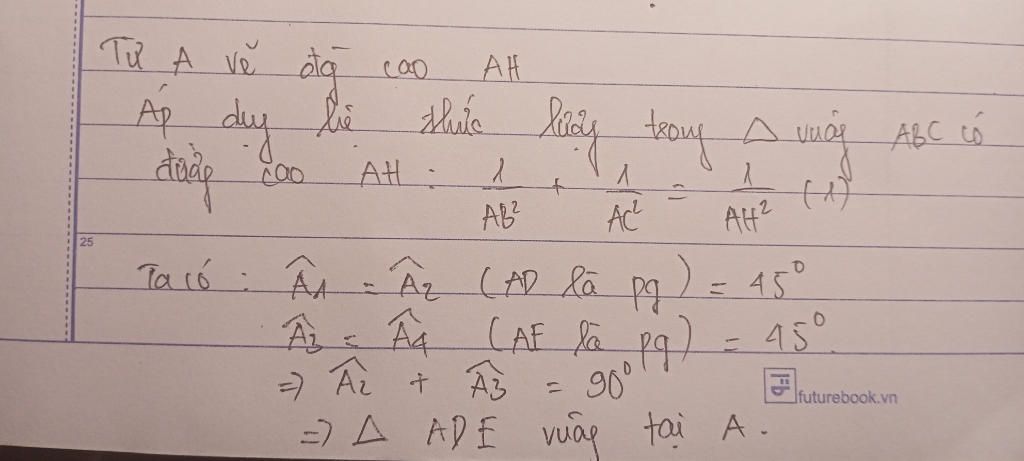 Từ A vẽ đḡ cao AH
Áp dụg hệ thức lượg trong Δ vuôg ABC có
đườg cao AH : 1/AB² + 1/AC² = 1/AH² (1)
25
Ta có : Â1 = Â2 (AD là pg) = 45°
Â3 = Â4 (AE là pg) = 45°.
=> Â2 + Â3 = 90°
futurebook.vn
=> Δ ADE vuôg tại A.